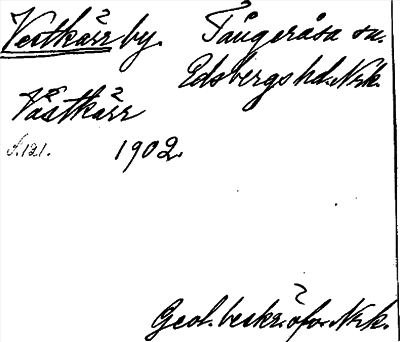 Vestkärr by. Tångeråsa sn.
Edsbergs hd. Nrk.
Västkärr
s. 121. 1902.
Geol. beskr. öfver Nrk.